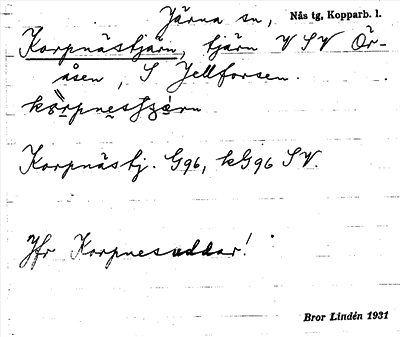 Järna sn, Nås tg, Kopparb. l.
Korpnästjärn, tjärn V SV Ör-
åsen, S Jellforsen.
Korpnästj. G96, kG96 SV.
Jfr Korpnesuddar!
Bror Lindén 1931